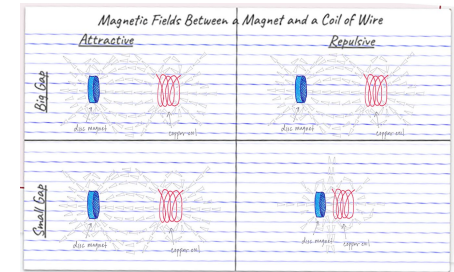 Magnetic Fields Between a Magnet and a Coil of Wire
Attractive
Repulsive
Big Gap
disc magnet
copper coil
disc magnet
copper coil
Small Gap
disc magnet
copper coil
disc magnet
copper coil